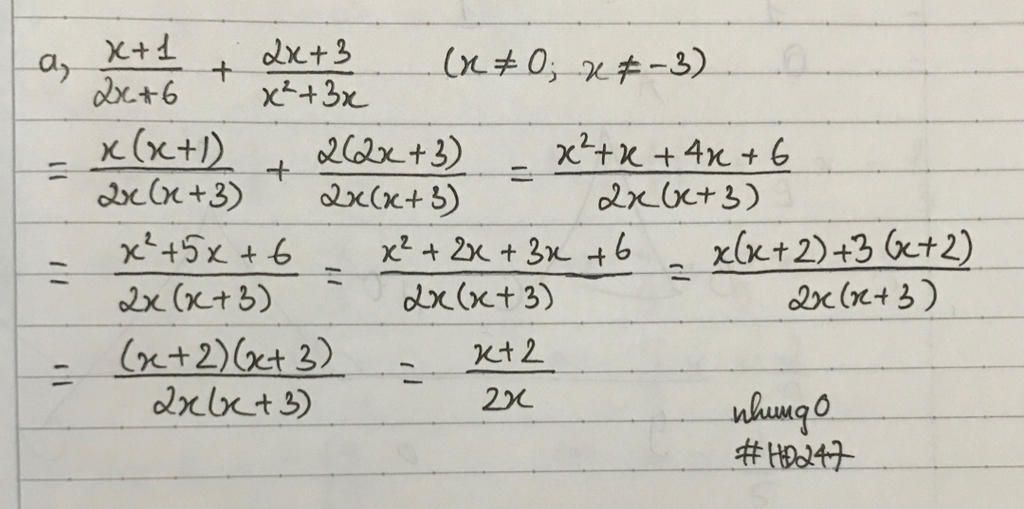 a, \frac{x+1}{2x+6} + \frac{2x+3}{x^2+3x} (x ≠ 0; x ≠ -3)
= \frac{x(x+1)}{2x(x+3)} + \frac{2(2x+3)}{2x(x+3)} = \frac{x^2+x+4x+6}{2x(x+3)}
= \frac{x^2+5x+6}{2x(x+3)} = \frac{x^2+2x+3x+6}{2x(x+3)} = \frac{x(x+2)+3(x+2)}{2x(x+3)}
= \frac{(x+2)(x+3)}{2x(x+3)} = \frac{x+2}{2x}
nhung0
#HD247